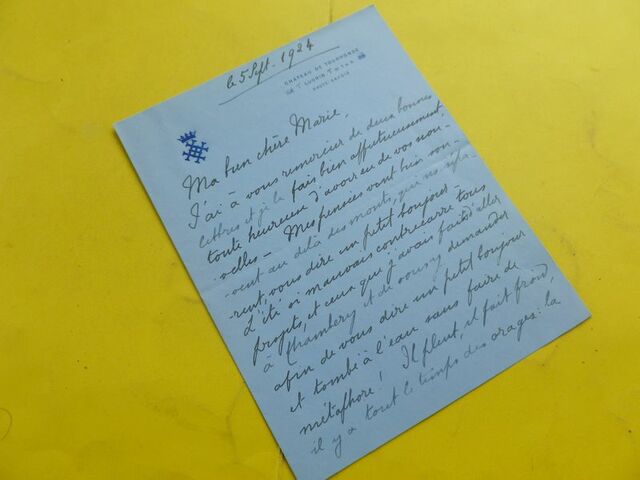 le 5 Sept. 1924
CHÂTEAU DE TOURRONDE
LUGRIN
HAUTE-SAVOIE
Ma bien chère Marie,
J'ai à vous remercier de deux bonnes
lettres et je le fais bien affectueusement
toute heureuse d'avoir eu de vos nou-
velles — Mes pensées vont bien sou-
vent au delà des monts, qui nous sépa-
rent, vous dire un petit bonjour —
L'été si mauvais contrecarre tous
projets, et ceux que j'avais faits d'aller
à Chambéry et de vous y demander
afin de vous dire un petit bonjour
est tombé à l'eau sans faire de
métaphore! Il pleut, il fait froid
il y a tout le temps des orages: là